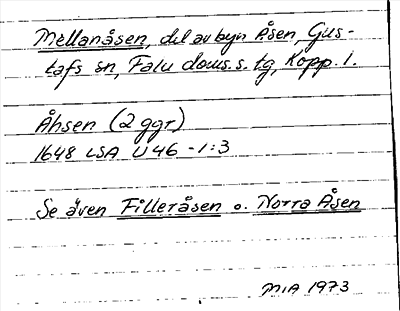 Mellanåsen, del av byn Åsen, Gus-
tafs sn, Falu doms.s. tg, Kopp. l.
Åhsen (2 ggr)
1648 LSA U 46 - 1:3
Se även Filleråsen o. Norra Åsen
MIA 1973